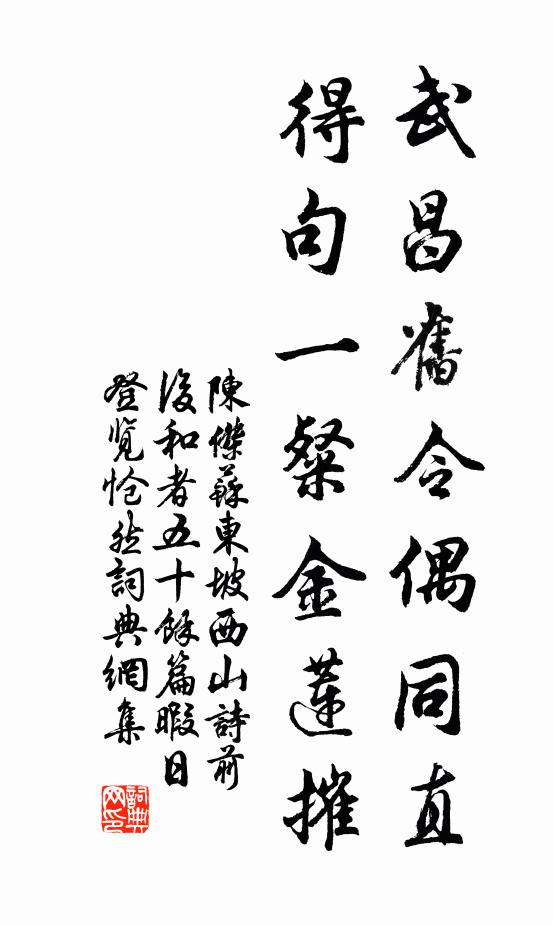 武昌舊令偶同直
得句一粲金蓮摧
陳傑蘇東坡西山詩前
後和者五十餘篇暇日
登覽愴然詞典網集
詞典网印